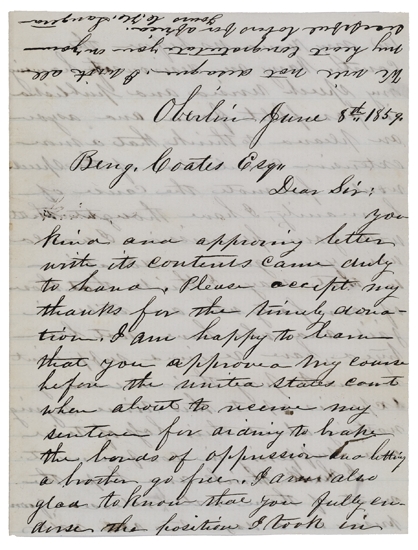 We are not strangers. I wish all
my heart congratulate you on your
successful labors for Africa.
Yours C. H. Langston
Oberlin June 8th, 1859.
Benj. Coates Esq.
Dear Sir:
You
kind and approving letter
with its contents came duly
to hand. Please accept my
thanks for the timely dona-
tion. I am happy to learn
that you approve my course
before the united states court
when about to receive my
sentence for aiding to brake
the bonds of oppression and letting
a brother go free. I am also
glad to know that you fully en-
dorse the position I took in